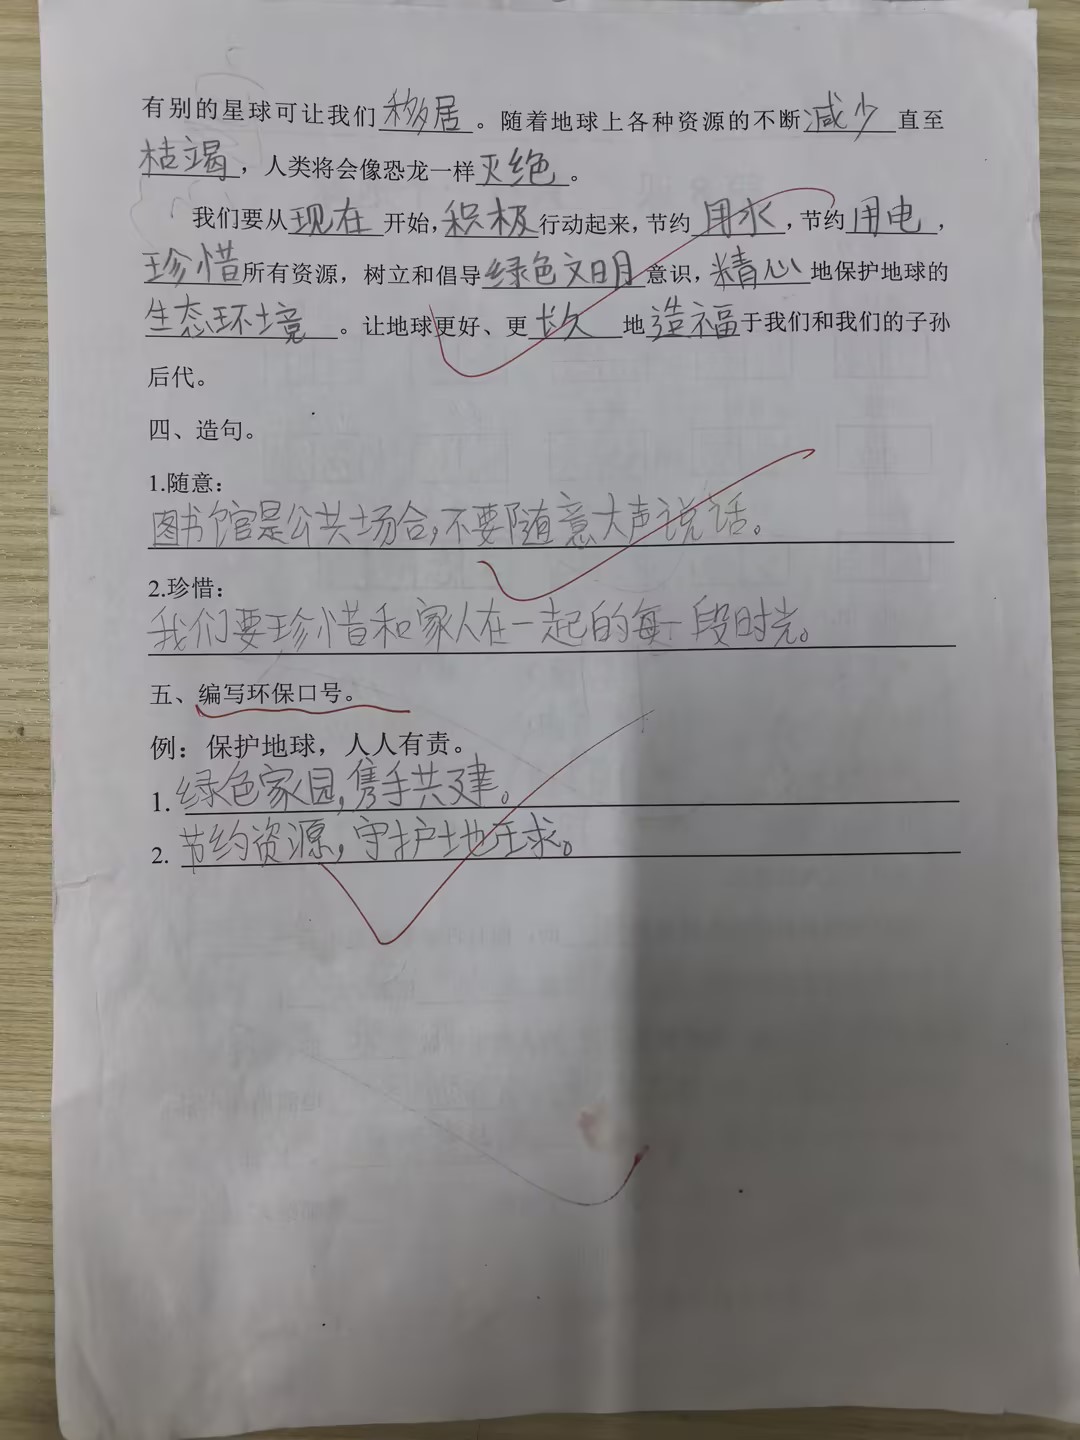 有别的星球可让我们移居。随着地球上各种资源的不断减少直至
枯竭，人类将会像恐龙一样灭绝。
我们要从现在开始，积极行动起来，节约用水，节约用电，
珍惜所有资源，树立和倡导绿色文明意识，精心地保护地球的
生态环境。让地球更好、更长久地造福于我们和我们的子孙
后代。
四、造句。
1.随意：
图书馆是公共场合，不要随意大声说话。
2.珍惜：
我们要珍惜和家人在一起的每一段时光。
五、编写环保口号。
例：保护地球，人人有责。
1. 绿色家园，携手共建。
2. 节约资源，守护地球。